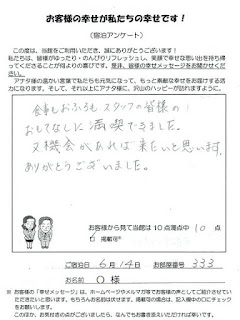 お客様の幸せが私たちの幸せです!
(宿泊アンケート)
この度は、当館をご利用いただき、誠にありがとうございます!
私たちは、皆様がゆったり・のんびりリフレッシュし、笑顔で幸せな思い出を持ち帰ってくださることが何よりの喜びです。是非、皆様の幸せメッセージをお聞かせください。
アナタ様の温かい言葉で私たちも元気になって、もっと素敵な幸せをお届けする活力になります。そして、それ以上にアナタ様に、沢山のハッピーが訪れますように。
食事もおふろも スタッフの皆様の!
おもてなしに 満喫できました。
又機会があれば 来たいと思います。
ありがとうございました。
お客様から見て当館は 10点満点中 10 点
掲載可
ご宿泊日 6月14日 お部屋番号 333
お名前 O 様
※ お客様の「幸せメッセージ」は、ホームページやメルマガ等でお客様の声としてご紹介させていただきたいと思います。もちろんお名前は伏せます。掲載可の場合は、記入欄中の□にチェックをお願いします。
このほか、お気付きの点がございましたら、なんでもお書き添えいただければ幸いです。